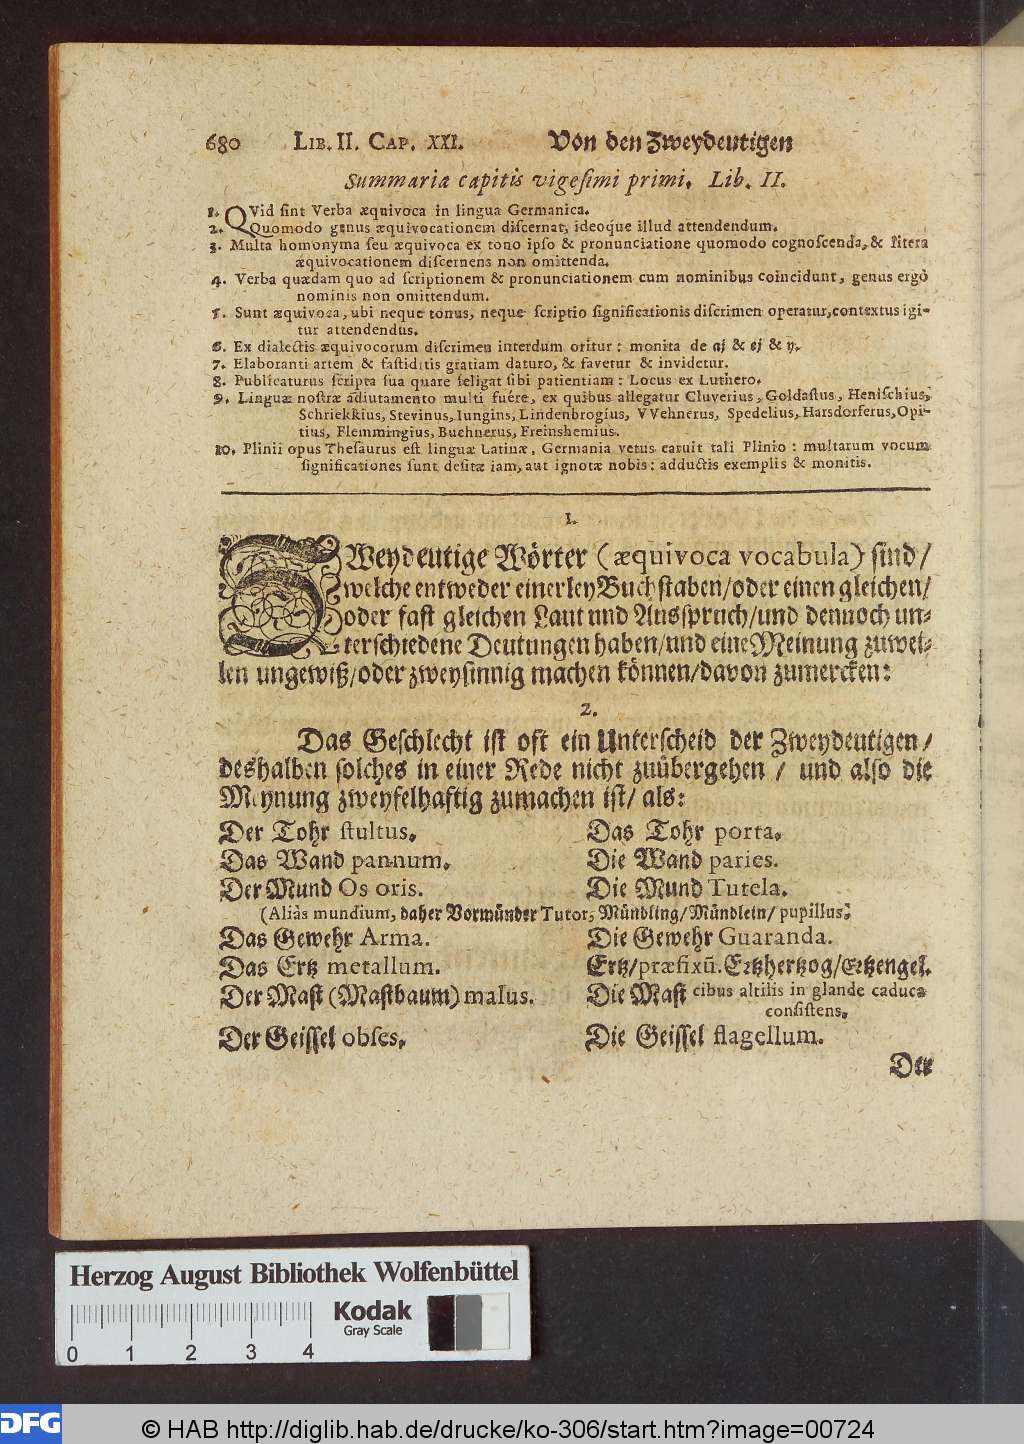 680 LIB. II. CAP. XXI. Von den Zweydeutigen
Summaria capitis vigeſimi primi. Lib. II.
1. QVid ſint Verba æquivoca in lingua Germanica.
2. Quomodo genus æquivocationem diſcernat, ideoque illud attendendum.
3. Multa homonyma ſeu æquivoca ex tono ipſo & pronunciatione quomodo cognoſcenda, & litera
æquivocationem diſcernens non omittenda.
4. Verba quædam quo ad ſcriptionem & pronunciationem cum nominibus coincidunt, genus ergò
nominis non omittendum.
5. Sunt æquivoca, ubi neque tonus, neque ſcriptio ſignificationis diſcrimen operatur, contextus igi-
tur attendendus.
6. Ex dialectis æquivocorum diſcrimen interdum oritur: monita de aj & ej & y.
7. Elaboranti artem & faſtiditis gratiam daturo, & favetur & invidetur.
8. Publicaturus ſcripta ſua quare ſeligat ſibi patientiam: Locus ex Luthero.
9. Linguæ noſtræ adiutamento multi fuêre, ex quibus allegatur Cluverius, Goldaſtus, Heniſchius,
Schriekkius, Stevinus, Iungius, Lindenbrogius, VVehnerus, Spedelius, Harsdorferus, Opi-
tius, Flemmingius, Buchnerus, Freinshemius.
10. Plinii opus Theſaurus eſt linguæ Latinæ, Germania vetus caruit tali Plinio: multarum vocum
ſignificationes ſunt deſitæ iam, aut ignotæ nobis: adductis exemplis & monitis.
1.
ZWeydeutige Wörter (æquivoca vocabula) ſind/
welche entweder einerley Buchſtaben/ oder einen gleichen/
oder faſt gleichen Laut und Ausſpruch/ und dennoch un-
terſchiedene Deutungen haben/ und eine Meinung zuwei-
len ungewiß/ oder zweyſinnig machen können/ davon zumercken:
2.
Das Geſchlecht iſt oft ein Unterſcheid der Zweydeutigen/
deshalben ſolches in einer Rede nicht zuübergehen / und alſo die
Meynung zweyfelhaftig zumachen iſt/ als:
Der Tohr ſtultus. Das Tohr porta.
Das Wand pannum. Die Wand paries.
Der Mund Os oris. Die Mund Tutela.
(Aliàs mundium, daher Vormünder Tutor, Mündling/ Mündlein/ pupillus.)
Das Gewehr Arma. Die Gewehr Guaranda.
Das Ertz metallum. Ertz/ præfixũ. Ertzhertzog/ Ertzengel.
Der Maſt (Maſtbaum) malus. Die Maſt cibus altilis in glande caduca
conſiſtens.
Der Geiſſel obſes. Die Geiſſel flagellum.
Der
Herzog August Bibliothek Wolfenbüttel
Kodak
Gray Scale
0 1 2 3 4
DFG © HAB http://diglib.hab.de/drucke/ko-306/start.htm?image=00724